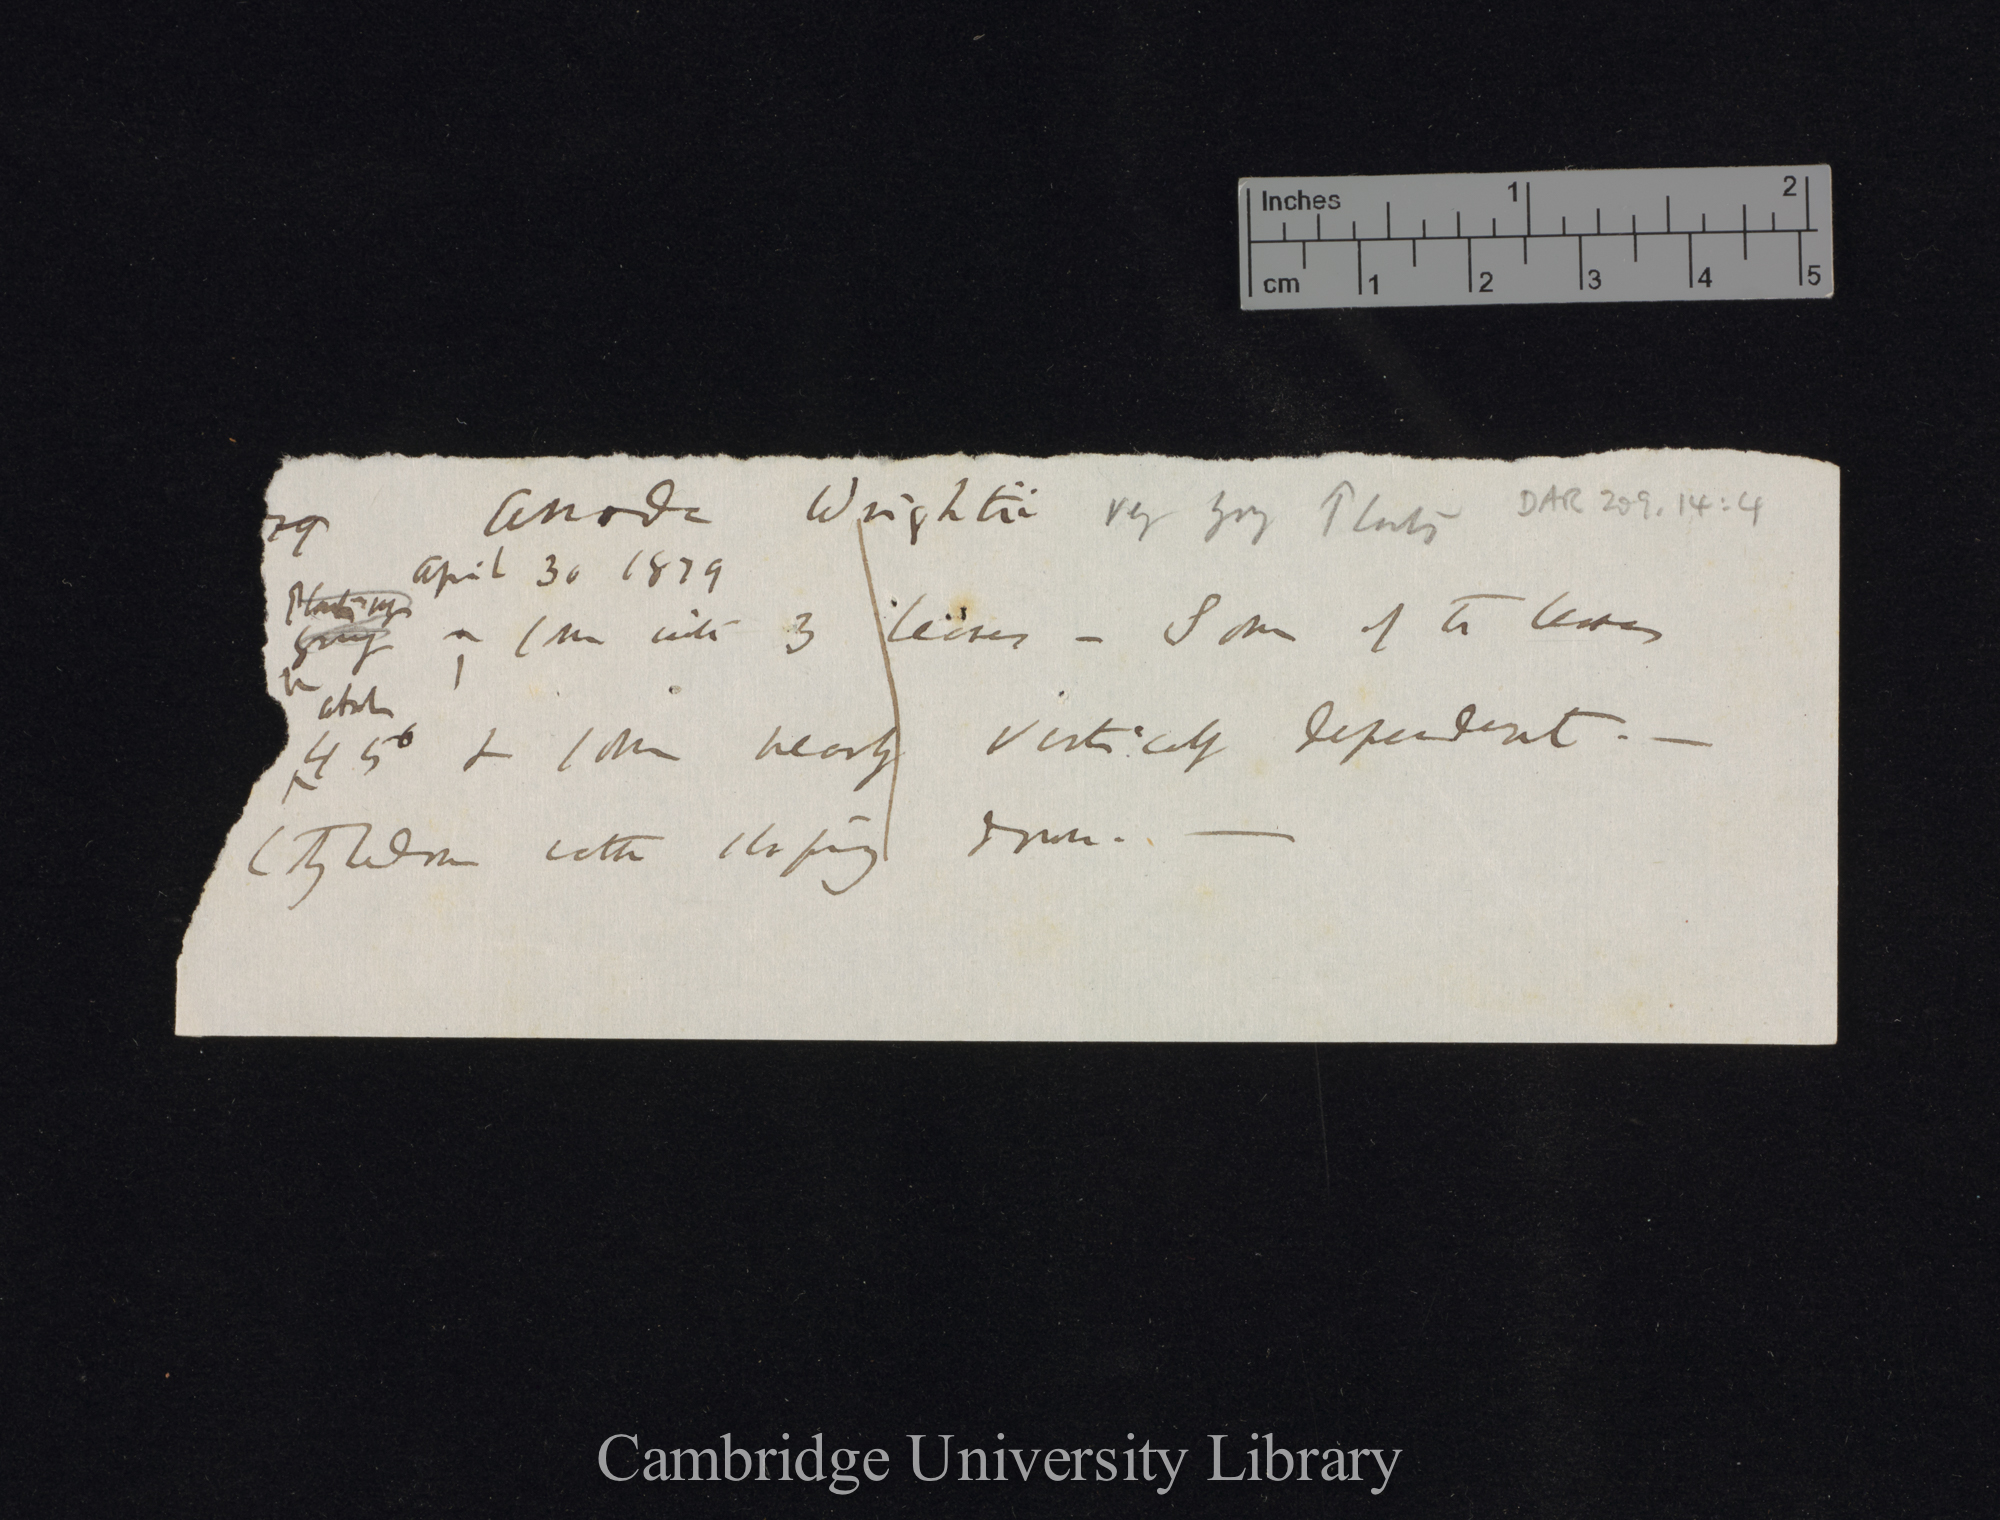 Inches 1 2
cm 1 2 3 4 5
79 Anoda Wrightii very young Plants DAR 209.14:4
April 30 1879
Plants very
young & some with 3 leaves – Some of the leaves
about
45° & some nearly vertically dependent. —
Cotyledons rather sloping down. —
Cambridge University Library